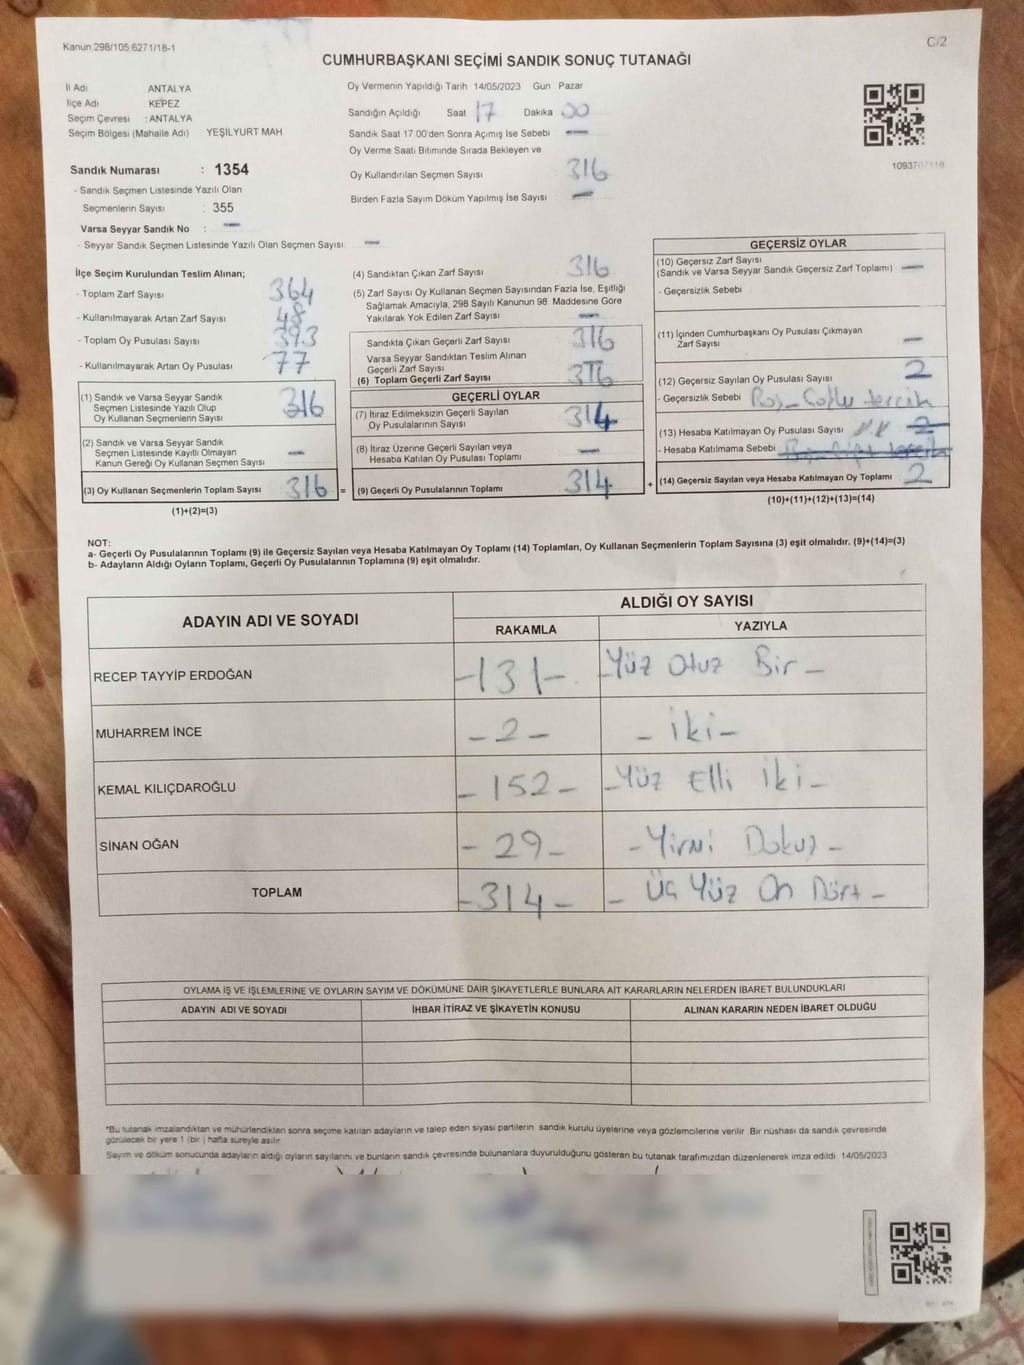 Kanun 298/105 6271/18-1
C/2
CUMHURBAŞKANI SEÇİMİ SANDIK SONUÇ TUTANAĞI
İl Adı ANTALYA
İlçe Adı KEPEZ
Seçim Çevresi : ANTALYA
Seçim Bölgesi (Mahalle Adı) YEŞİLYURT MAH
Sandık Numarası : 1354
- Sandık Seçmen Listesinde Yazılı Olan
Seçmenlerin Sayısı : 355
Varsa Seyyar Sandık No : —
- Seyyar Sandık Seçmen Listesinde Yazılı Olan Seçmen Sayısı —
Oy Vermenin Yapıldığı Tarih 14/05/2023 Gün Pazar
Sandığın Açıldığı Saat 17 Dakika 00
Sandık Saat 17 00'den Sonra Açımış İse Sebebi —
Oy Verme Saati Bitiminde Sırada Bekleyen ve
Oy Kullandırılan Seçmen Sayısı 316
Birden Fazla Sayım Döküm Yapılmış İse Sayısı —
İlçe Seçim Kurulundan Teslim Alınan;
- Toplam Zarf Sayısı 364
- Kullanılmayarak Artan Zarf Sayısı 48
- Toplam Oy Pusulası Sayısı 393
- Kullanılmayarak Artan Oy Pusulası 77
(1) Sandık ve Varsa Seyyar Sandık
Seçmen Listesinde Yazılı Olup
Oy Kullanan Seçmenlerin Sayısı 316
(2) Sandık ve Varsa Seyyar Sandık
Seçmen Listesinde Kayıtlı Olmayan
Kanun Gereği Oy Kullanan Seçmen Sayısı —
(3) Oy Kullanan Seçmenlerin Toplam Sayısı 316 =
(1)+(2)=(3)
(4) Sandıktan Çıkan Zarf Sayısı 316
(5) Zarf Sayısı Oy Kullanan Seçmen Sayısından Fazla İse, Eşitliği
Sağlamak Amacıyla, 298 Sayılı Kanunun 98. Maddesine Göre
Yakılarak Yok Edilen Zarf Sayısı —
Sandıkta Çıkan Geçerli Zarf Sayısı 316
Varsa Seyyar Sandıktan Teslim Alınan
Geçerli Zarf Sayısı
(6) Toplam Geçerli Zarf Sayısı 316
GEÇERLİ OYLAR
(7) İtiraz Edilmeksizin Geçerli Sayılan
Oy Pusulalarının Sayısı 314
(8) İtiraz Üzerine Geçerli Sayılan veya
Hesaba Katılan Oy Pusulası Toplamı —
(9) Geçerli Oy Pusulalarının Toplamı 314 +
GEÇERSİZ OYLAR
(10) Geçersiz Zarf Sayısı
(Sandık ve Varsa Seyyar Sandık Geçersiz Zarf Toplamı) —
- Geçersizlik Sebebi
(11) İçinden Cumhurbaşkanı Oy Pusulası Çıkmayan
Zarf Sayısı —
(12) Geçersiz Sayılan Oy Pusulası Sayısı 2
- Geçersizlik Sebebi
(13) Hesaba Katılmayan Oy Pusulası Sayısı 2
- Hesaba Katılmama Sebebi
(14) Geçersiz Sayılan veya Hesaba Katılmayan Oy Toplamı 2
(10)+(11)+(12)+(13)=(14)
NOT:
a- Geçerli Oy Pusulalarının Toplamı (9) ile Geçersiz Sayılan veya Hesaba Katılmayan Oy Toplamı (14) Toplamları, Oy Kullanan Seçmenlerin Toplam Sayısına (3) eşit olmalıdır. (9)+(14)=(3)
b- Adayların Aldığı Oyların Toplamı, Geçerli Oy Pusulalarının Toplamına (9) eşit olmalıdır.
ADAYIN ADI VE SOYADI
ALDIĞI OY SAYISI
RAKAMLA YAZIYLA
RECEP TAYYİP ERDOĞAN -131- -Yüz Otuz Bir-
MUHARREM İNCE -2- -iki-
KEMAL KILIÇDAROĞLU -152- -Yüz Elli İki-
SİNAN OĞAN -29- -Yirmi Dokuz-
TOPLAM -314- -Üç Yüz On Dört-
OYLAMA İŞ VE İŞLEMLERİNE VE OYLARIN SAYIM VE DÖKÜMÜNE DAİR ŞİKAYETLERLE BUNLARA AİT KARARLARIN NELERDEN İBARET BULUNDUKLARI
ADAYIN ADI VE SOYADI İHBAR İTİRAZ VE ŞİKAYETİN KONUSU ALINAN KARARIN NEDEN İBARET OLDUĞU
*Bu tutanak imzalandıktan ve mühürlendikten sonra seçime katılan adayların ve talep eden siyasi partilerin sandık kurulu üyelerine veya gözlemcilerine verilir. Bir nüshası da sandık çevresinde
görülecek bir yere 1 (bir ) hafta süreyle asılır
Sayım ve döküm sonucunda adayların aldığı oyların sayılarını ve bunların sandık çevresinde bulunanlara duyurulduğunu gösteren bu tutanak tarafımızdan düzenlenerek imza edildi. 14/05/2023